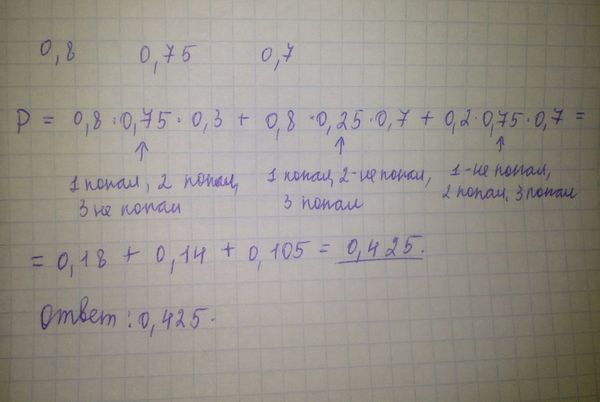 0,8 0,75 0,7
P = 0,8·0,75·0,3 + 0,8·0,25·0,7 + 0,2·0,75·0,7 =
1 попал, 2 попал, 1 попал, 2-не попал, 1-не попал,
3 не попал 3 попал 2 попал, 3 попал
= 0,18 + 0,14 + 0,105 = 0,425.
Ответ: 0,425.